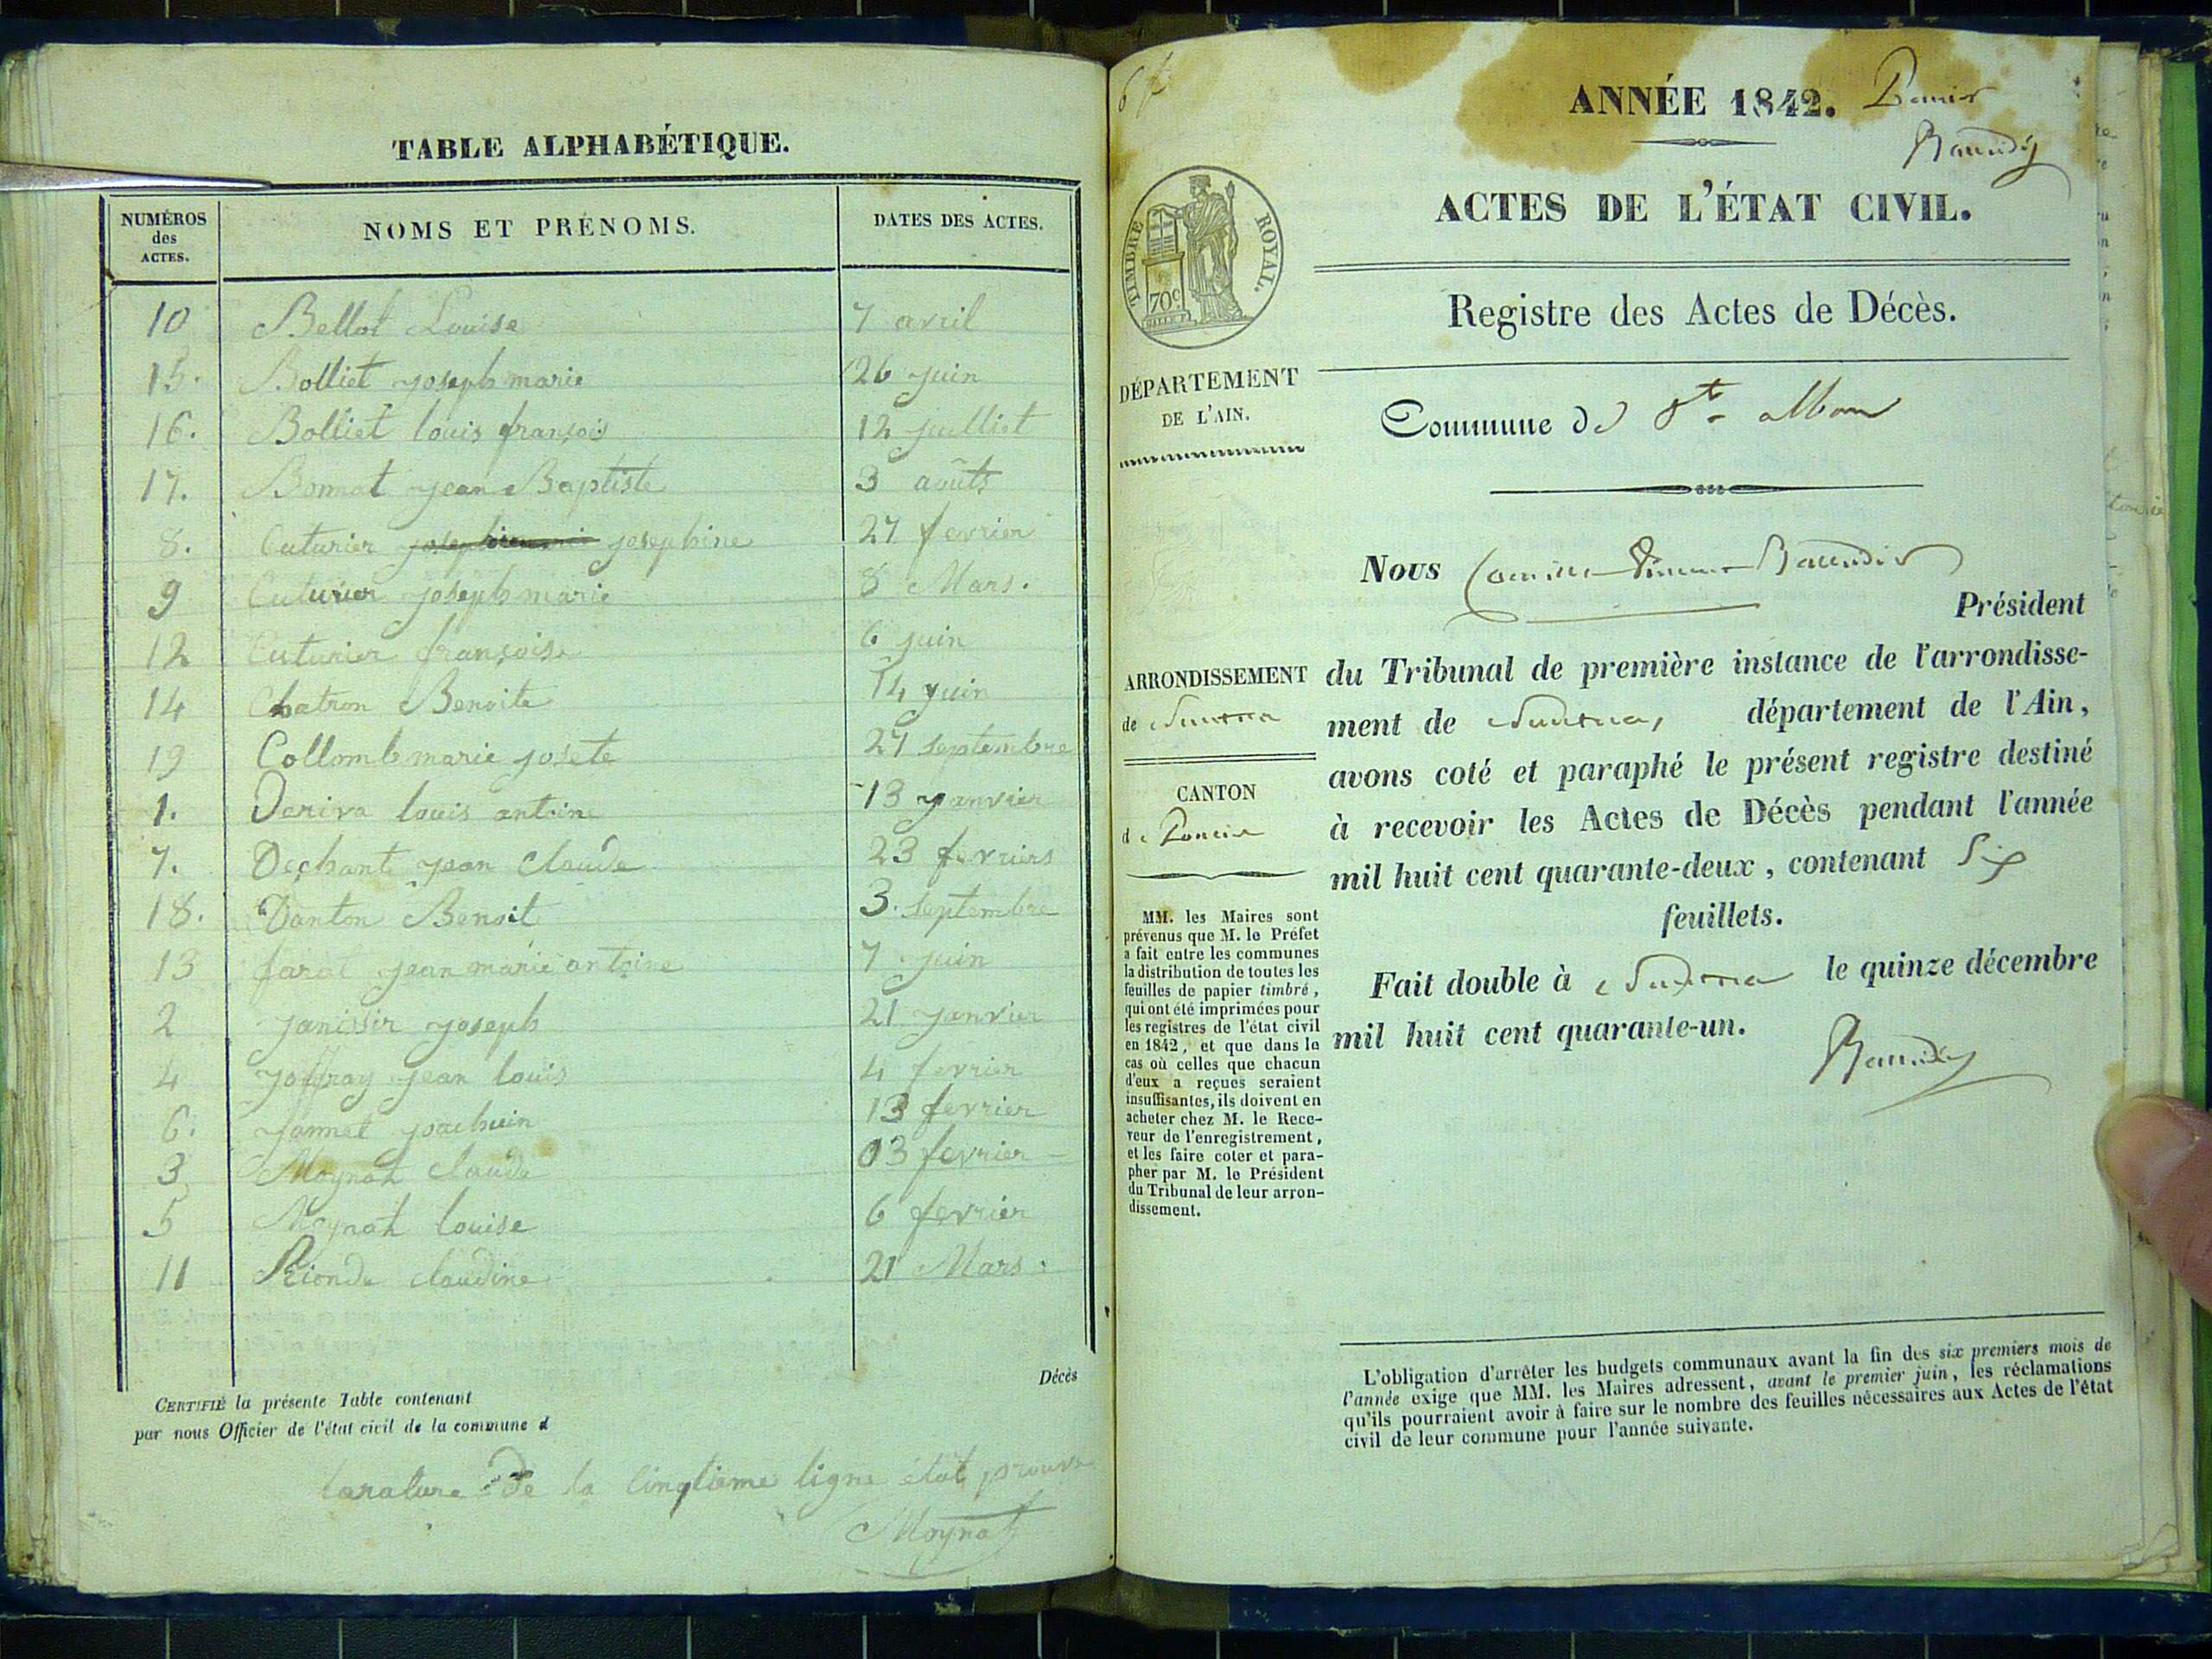 TABLE ALPHABÉTIQUE.
NUMÉROS des ACTES. NOMS ET PRÉNOMS. DATES DES ACTES.
10 Bellot Louise 7 avril
15. Bolliet joseph marie 26 juin
16. Bolliet louis françois 12 julliet
17. Bonnat jean Baptiste 3 août
8. Cuturier josephine 27 fevrier
9 Cuturier joseph marie 8 Mars.
12 Cuturier françoise 6 juin
14 Chatron Benoite 14 juin
19 Collomb marie josete 27 septembre
1. Deriva louis antoine 13 janvier
7. Dechant jean Claude 23 fevriers
18. Danton Benoit 3. septembre
13 farat jean marie antoine 7 juin
2 janissir joseph 21 janvier
4 joffray jean louis 4 fevrier
6. jannet 13 fevrier
3 Moynat Claude 03 fevrier
5 Moynat louise 6 fevrier
11 Rionde claudine 21 Mars.
Décès
CERTIFIÉ la présente Table contenant
par nous Officier de l'état civil de la commune d
larature De la Cinqtieme ligne étât
Moynat
ANNÉE 1842.
ACTES DE L'ÉTAT CIVIL.
TIMBRE ROYAL.
70c
Registre des Actes de Décès.
DÉPARTEMENT
DE L'AIN.
Commune de St alban
Nous Baudin
Président
ARRONDISSEMENT
de Nantua
du Tribunal de première instance de l'arrondisse-
ment de Nantua, département de l'Ain,
avons coté et paraphé le présent registre destiné
à recevoir les Actes de Décès pendant l'année
mil huit cent quarante-deux, contenant Six
feuillets.
CANTON
de Poncin
Fait double à Nantua le quinze décembre
mil huit cent quarante-un.
MM. les Maires sont
prévenus que M. le Préfet
a fait entre les communes
la distribution de toutes les
feuilles de papier timbré,
qui ont été imprimées pour
les registres de l'état civil
en 1842, et que dans le
cas où celles que chacun
d'eux a reçues seraient
insuffisantes, ils doivent en
acheter chez M. le Rece-
veur de l'enregistrement,
et les faire coter et para-
pher par M. le Président
du Tribunal de leur arron-
dissement.
L'obligation d'arrêter les budgets communaux avant la fin des six premiers mois de
l'année exige que MM. les Maires adressent, avant le premier juin, les réclamations
qu'ils pourraient avoir à faire sur le nombre des feuilles nécessaires aux Actes de l'état
civil de leur commune pour l'année suivante.